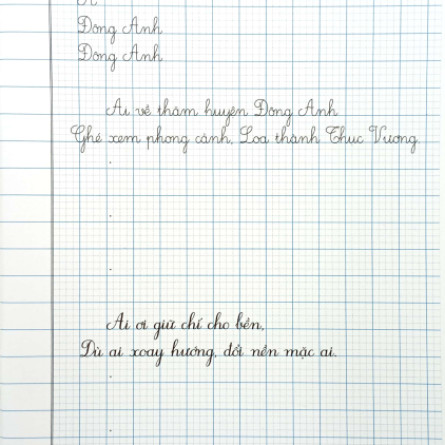 Đông Anh
Đông Anh
Ai về thăm huyện Đông Anh
Ghé xem phong cảnh, Loa thành Thục Vương
Ai ơi giữ chí cho bền,
Dù ai xoay hướng, đổi nền mặc ai.